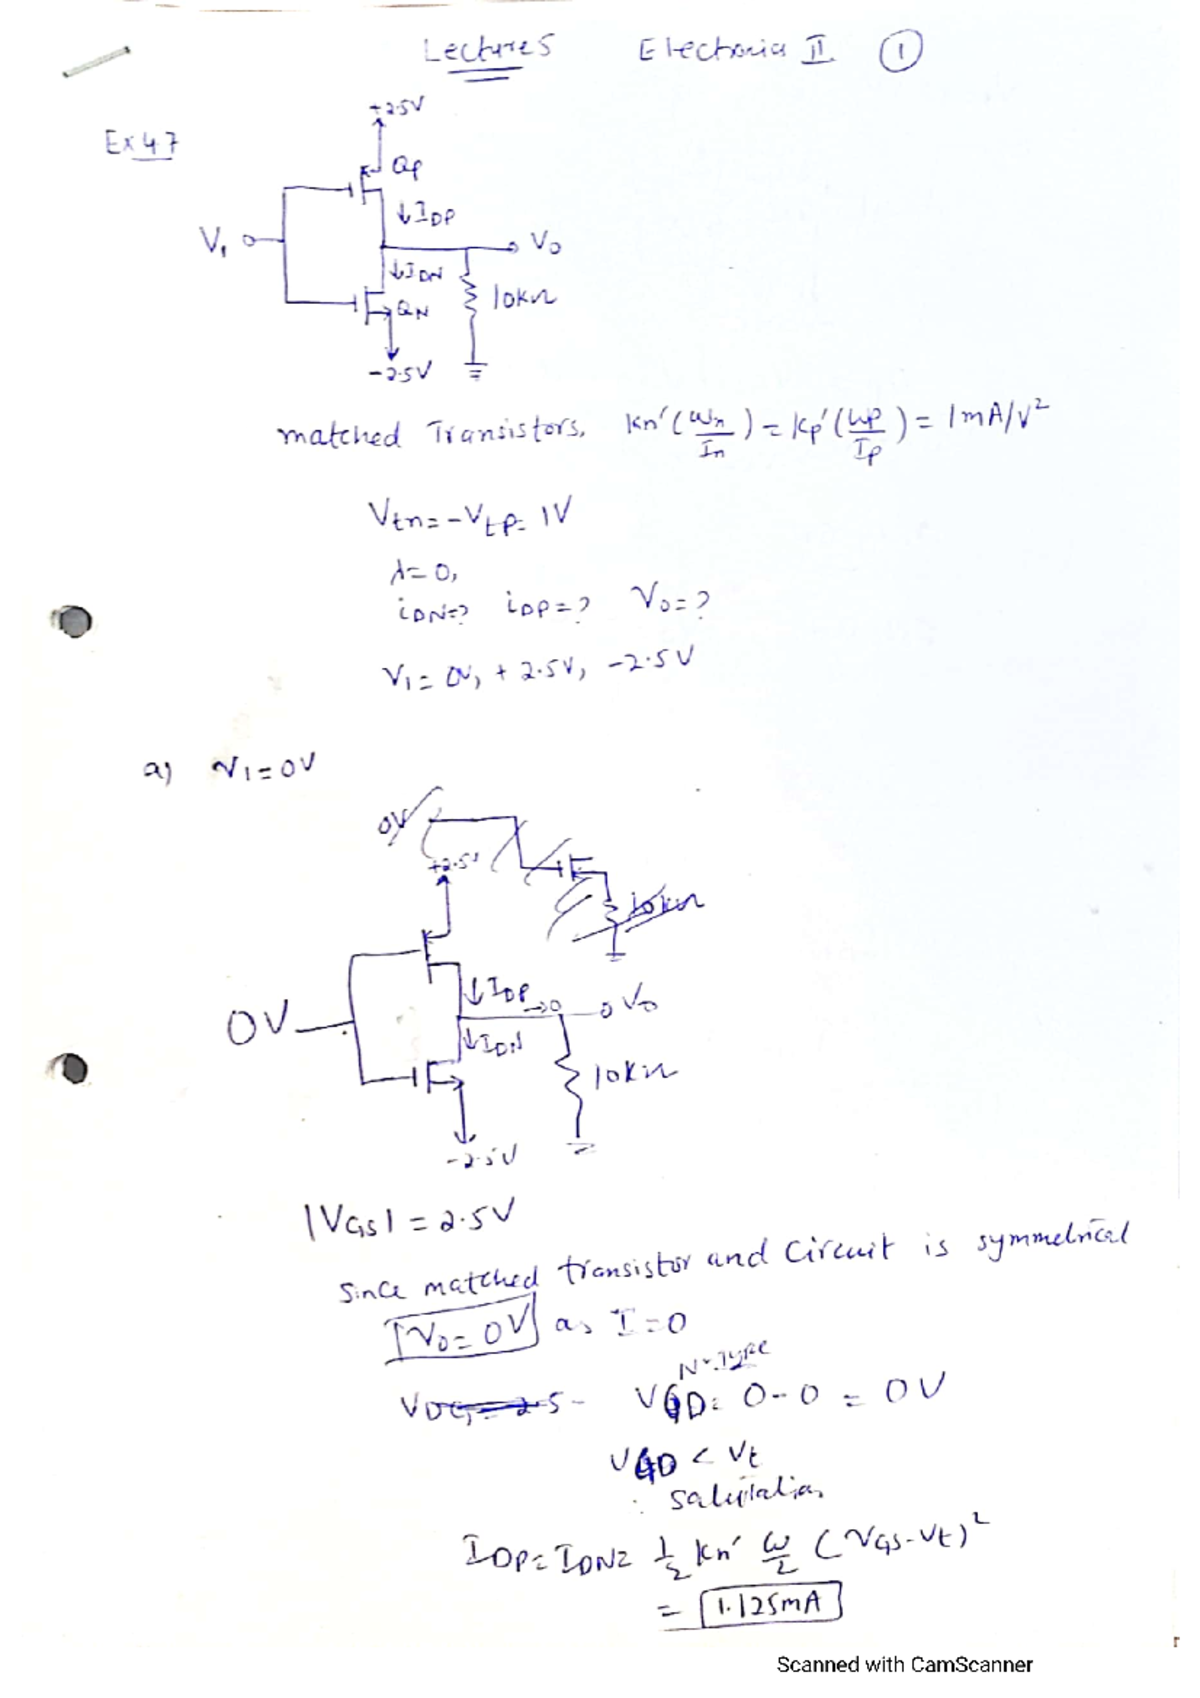 Lectures Electronics II ①
Ex 4.7
+2.5V
QP
↓IDP
V1
Vo
↓IDN
10kΩ
QN
-2.5V
matched Transistors, kn'(Wn/In) = kp'(Wp/Ip) = 1mA/V²
Vtn = -Vtp = 1V
λ = 0,
iDN=? iDP=? Vo=?
V1 = 0V, +2.5V, -2.5V
a) V1 = 0V
0V
+2.5V
10kΩ
↓IDP
→0
Vo
0V
↓IDN
10kΩ
-2.5V
|VGS| = 2.5V
Since matched transistor and circuit is symmetrical
Vo = 0V as I = 0
N-Type
VDG = 2.5 - VGD = 0-0 = 0V
VGD < Vt
∴ saturation
IDP = IDN = 1/2 kn' W/2 (VGS-Vt)²
= 1.125mA
Scanned with CamScanner